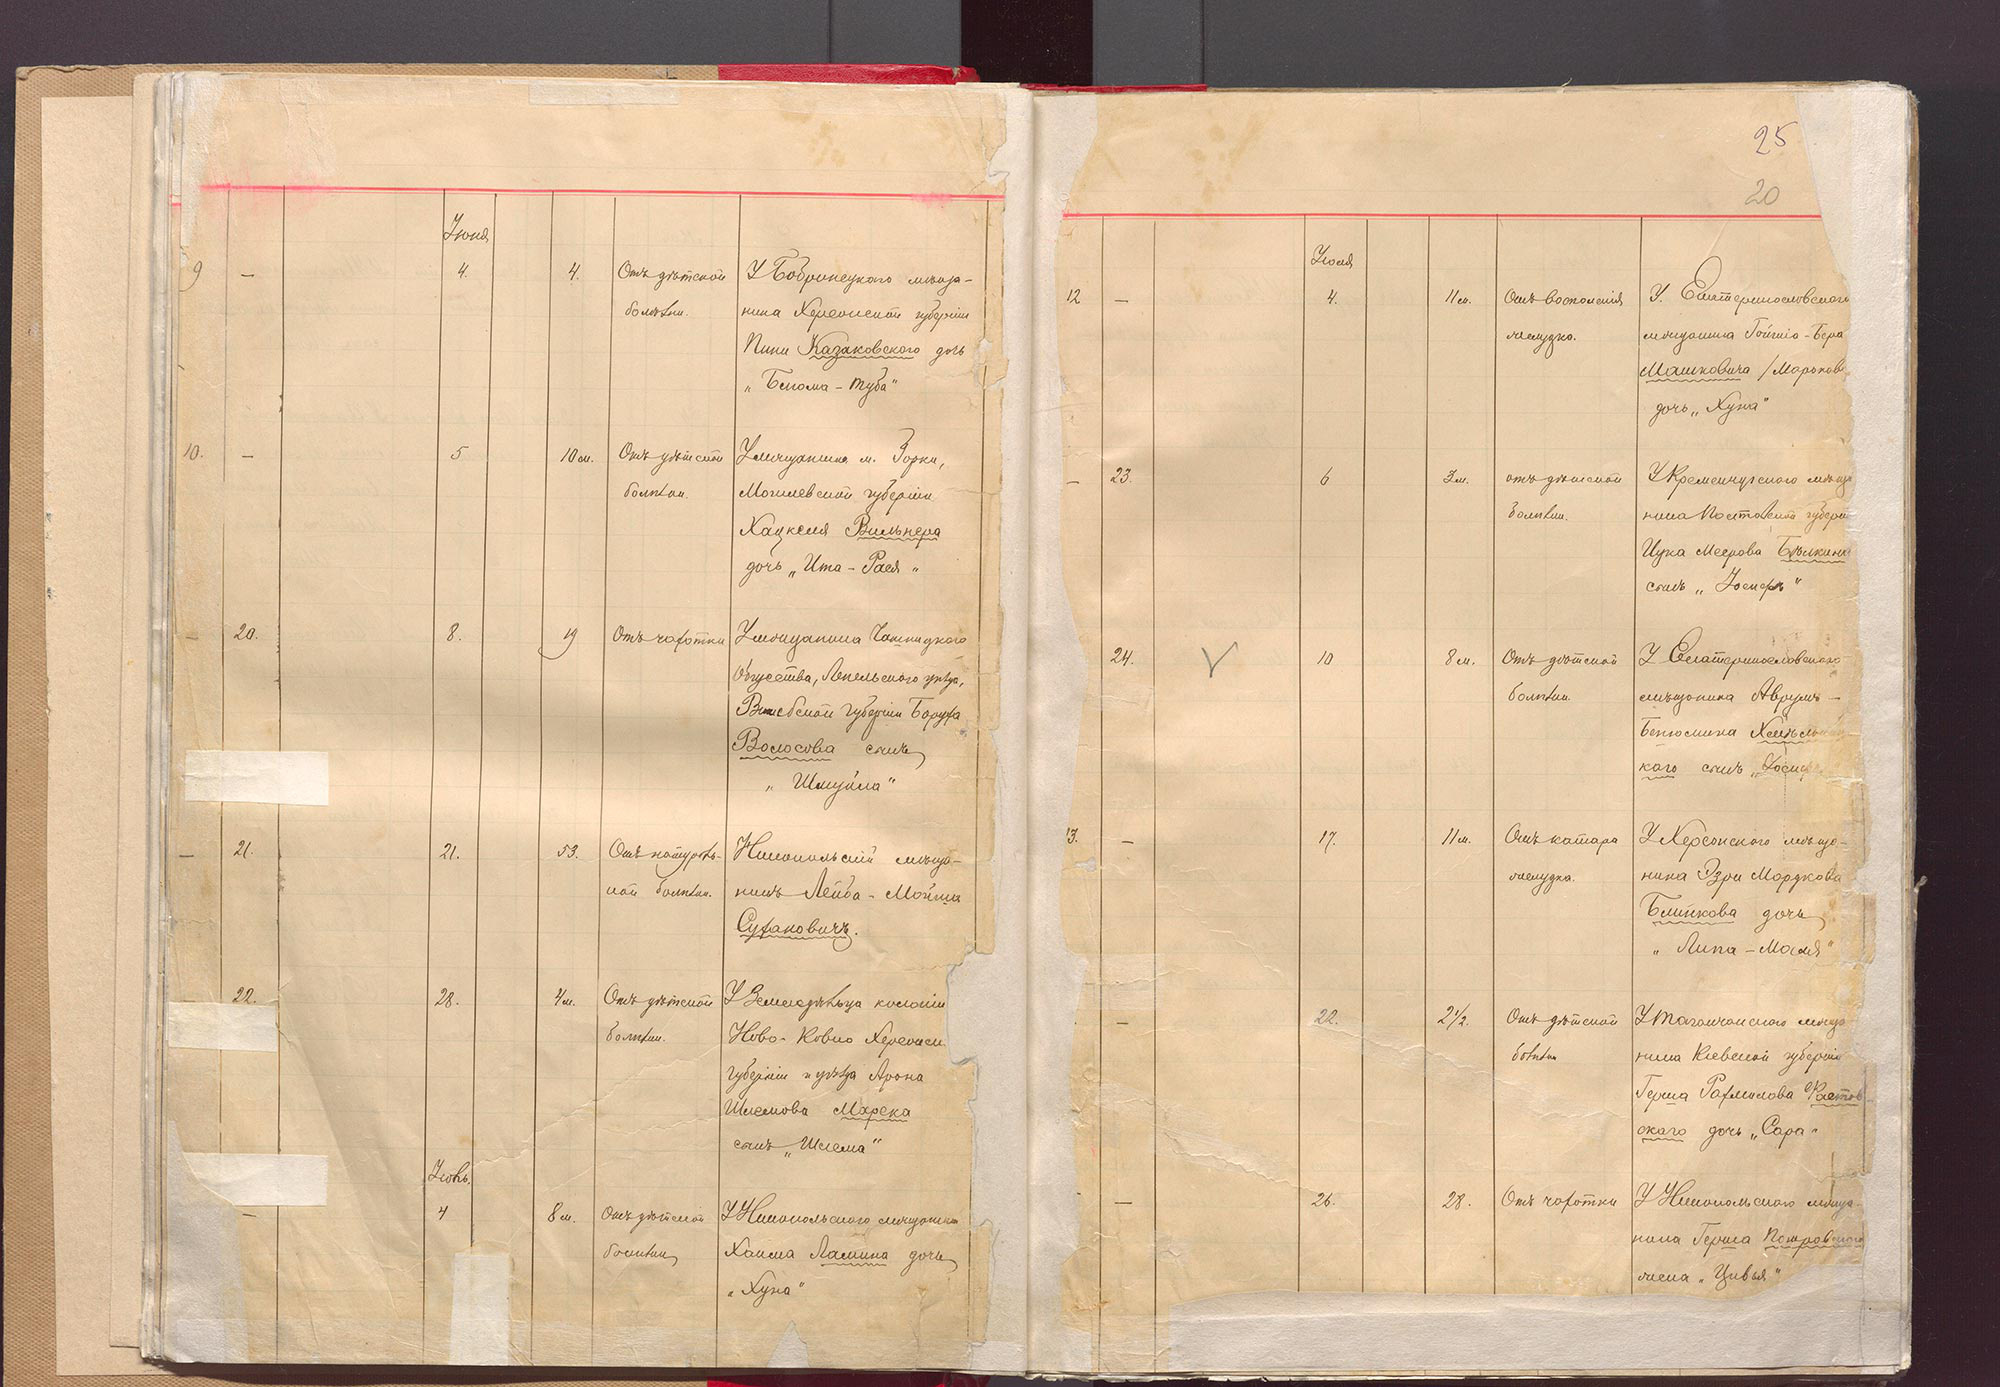 Іюня
9 — 4. 4. Отъ дѣтской У Бобринецкаго мѣща-
болѣзни. нина Херсонской губерніи
Пини Казаковскаго дочь
„Блюма-Туба“
10. — 5 10 м. Отъ дѣтской У мѣщанина м. Горки,
болѣзни. Могилевской губерніи
Хацкеля Вильнера
дочь „Ита-Рася„
— 20. 8. 19 Отъ чахотки У мѣщанина Чашницкаго
Общества, Лепельскаго уѣзда,
Витебской губерніи Боруха
Волосова сынъ
„Шмуйла“
— 21. 21. 53. Отъ натураль-
ной болѣзни. Никопольскій мѣща-
нинъ Лейба-Мойша
Суханович.
22. 28. 4 м. Отъ дѣтской У Земледѣльца колоніи
болѣзни. Ново-Ковно Херсонск.
губерніи и уѣзда Арона
Шлемова Марека
сынъ „Шлема“
Іюль.
— 4 8 м. Отъ дѣтской У Никопольскаго мѣщанина
болѣзни Хаима Лапина дочь
„Хуна“
25
20
Іюля
12 — 4. 11 м. Отъ воспаленія У. Екатеринославскаго
желудка. мѣщанина
Машковича /Марьков
дочь „Хуна“
— 23. 6 3 м. отъ дѣтской У Кременчугскаго мѣща
болѣзни. нина Полтавской губерн
Ицка Меерова Бѣлкина
сынъ „Іосифъ“
24. V 10 8 м. Отъ дѣтской У Екатеринославскаго
болѣзни. мѣщанина Аврумъ-
Беньомина
каго сынъ „Іосиф
13. — 17. 11 м. Отъ катара У Херсонскаго мѣща-
желудка. нина Эзри Мордкова
Блинкова дочь
„Липа-Маля“
— 22. 2 1/2. Отъ дѣтской У Таганчанскаго мѣща
болѣзни нина Кіевской губерніи
Герша Рахмилова Растов-
скаго дочь „Сара“
— 26. 28. Отъ чахотки У Никопольскаго мѣща-
нина Герша Покровскаго
жена „Цивья“